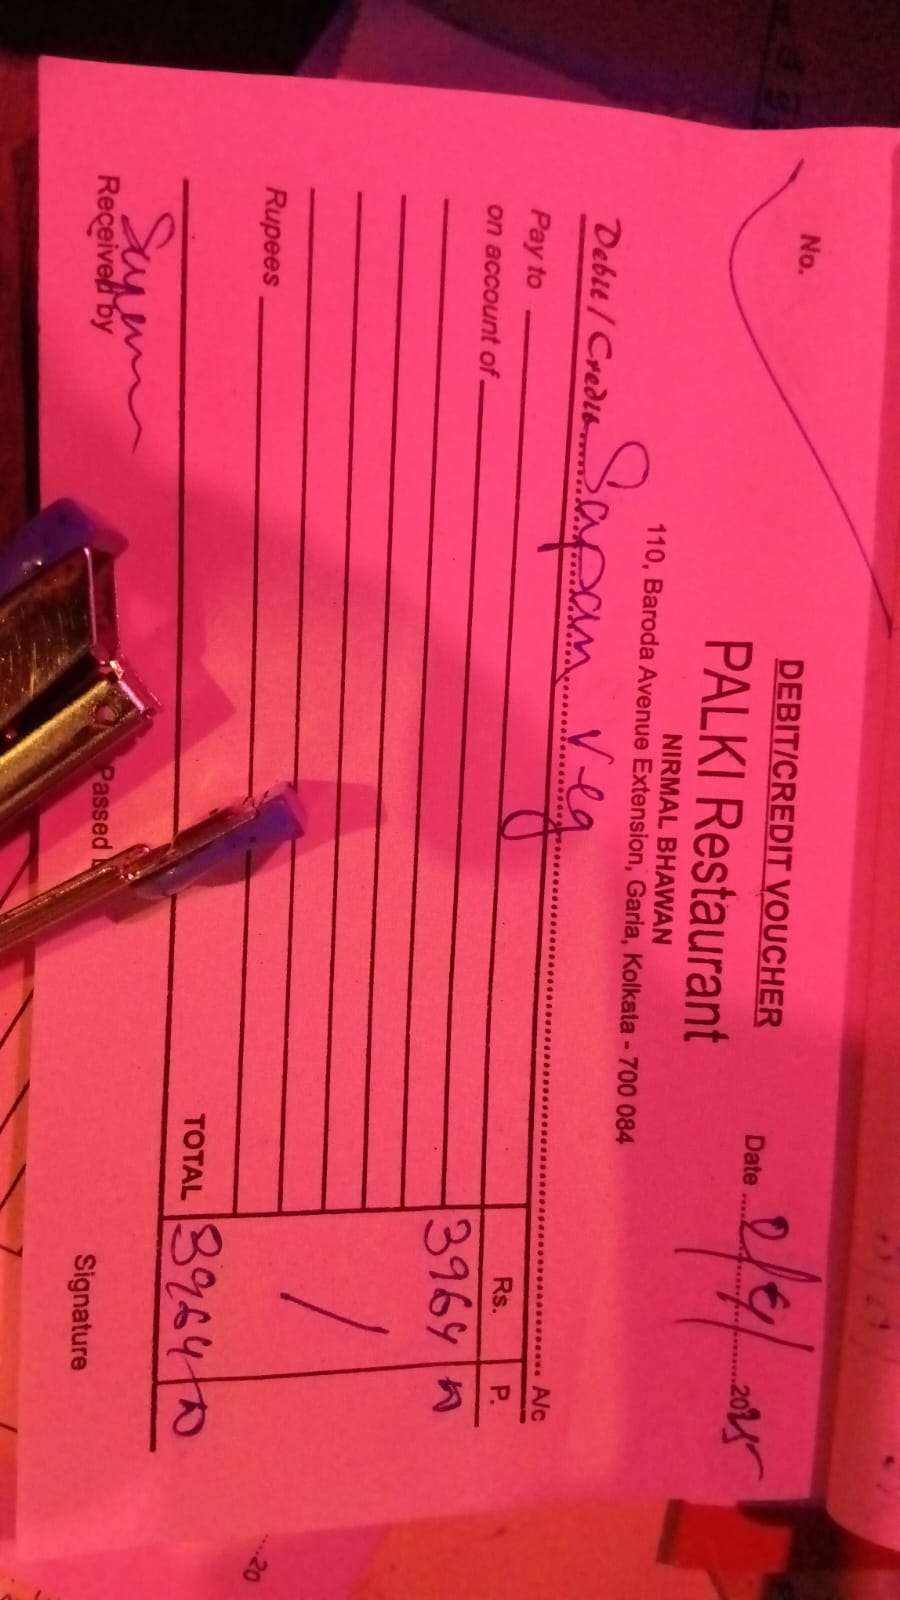 No.
DEBIT/CREDIT VOUCHER
PALKI Restaurant
NIRMAL BHAWAN
110, Baroda Avenue Extension, Garia, Kolkata - 700 084
Date ..........2025
Debit / Credit Sapan Veg A/c
Pay to
on account of
Rs. P.
3964 00
Rupees
TOTAL 3964 00
Received by
Passed
Signature
...20